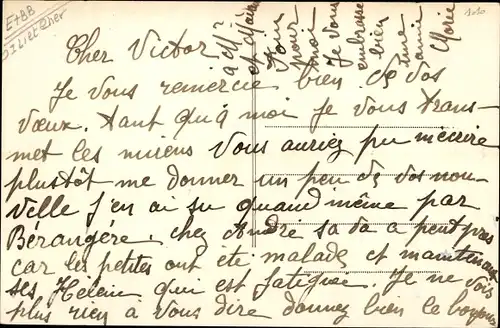 Cher Victor
Je vous remercie bien de vos
vœux. tant qu'a moi je vous trans-
met les miens vous auriez pu mécrire
plustôt me donner un peu de vos nou-
velle j'en ai su quand même par
Bérangère. chez André sa va a peut près
car les petites ont été malade et maintenant
ses Hélène qui est fatiguée. Je ne vois
plus rien a vous dire donnez bien le bonjour
à Mr
et
pour
moi
Je vous
embrasse
bien
une
amie
Marie